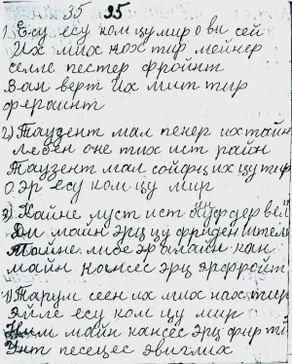 35 35
1) Есу есу ком цу мир о ви сей
Их мих нох тир мейнер
селле пестер фройнт
Ван верт их мит тир
ферайнт
2) Таузент мал пенер их тайн
Лебен оне тих ист райн
Таузент мал сойфц их цу тир
О эр есу ком цу мир
3) Кайне луст ист ауф дер вел
Ди майн эрц цу фриден штели
Тайне либе эр алайн кан
майн нанкес эрц эрфройт
4) Тарум сеен их мих нах тир
Эйле есу ком цу мир
Ним майн канcес эрц фир ти
Унт песецес эвиглих